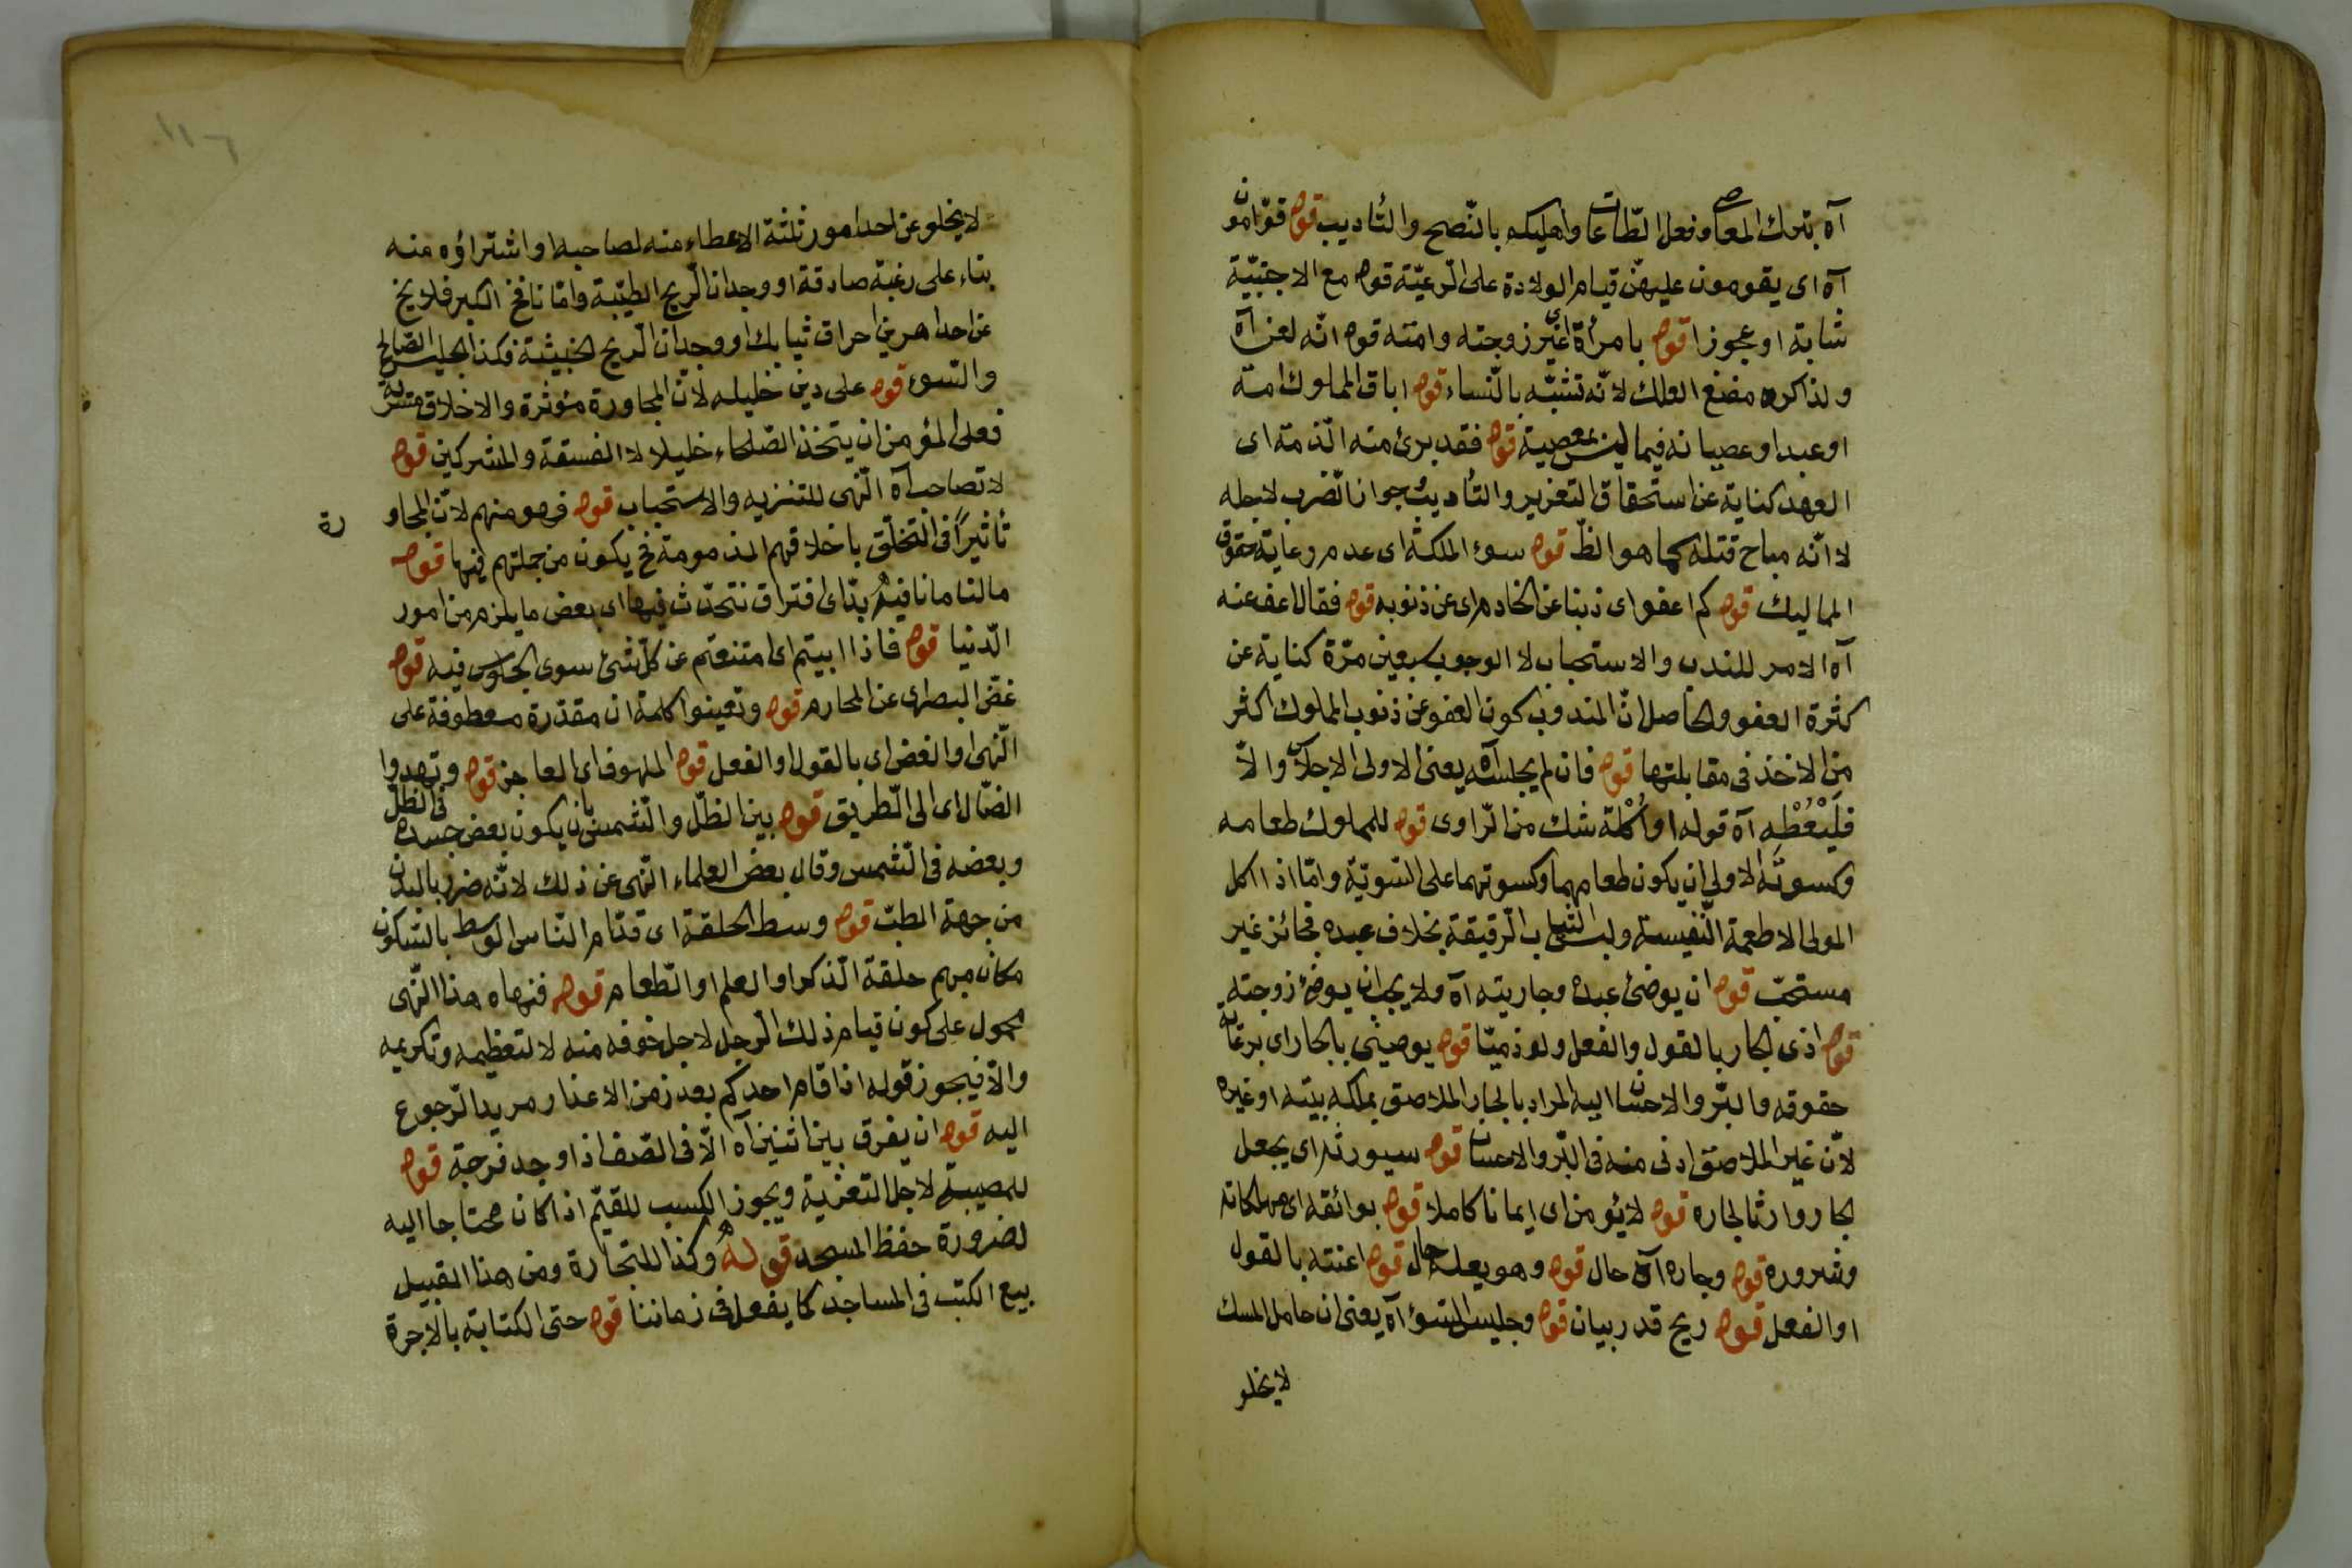 آه بترك المعاصى وفعل الطاعات واهليكم بالنّصح والتأديب قوله قوّامون
آه اى يقومون عليهنّ قيام الولادة على الرّعيّة قوله مع الاجنبيّة
شابة او عجوزا قوله بامرأة اى غير زوجته وامته قوله انّه لعن آه
ولذا كره مضغ العلك لانّه تشبّه بالنّساء قوله اباق المملوك امة
او عبدا وعصيانه فيما ليس بمعصية قوله فقد برئ منه الذمة اى
العهد كناية عن استحقاق التعزير والتأديب بجواز الضرب لاجله
لا انّه مباح قتله كما هو الظ قوله سوء الملكة اى عدم رعاية حقوق
المماليك قوله كم اعفو اى ذنبا عن الخادم اى عن ذنوبه قوله فقال اعف عنه
آه الامر للندب والاستحباب لا الوجوب سبعين مرّة كناية عن
كثرة العفو والحاصل انّ المندوب كون العفو عن ذنوب المملوك اكثر
من الاخذ فى مقابلتها قوله فان لم يجلسه آه يعنى الاولى الاجلاس والّا
فليعطه آه قوله او اكلة شك من الرّاوى قوله للمملوك طعامه
وكسوته الاولى ان يكون طعامهما وكسوتهما على السّويّة وامّا اذا اكل
المولى الاطعمة النّفيسة ولبس الثياب الرّقيقة بخلاف عبده فجائز غير
مستحبّ قوله ان يوضئ عبده وجاريته آه ولا يجب ان يوضئ زوجته
قوله اذى الجار بالقول والفعل ولو ذميّا قوله يوصينى بالجار اى برعاية
حقوقه والبرّ والاحسان اليه المراد بالجار الملاصق بملكه بيته او غيره
لانّ غير الملاصق ادنى منه فى البرّ والاحسان قوله سيورثه اى يجعل
الجار وارثا لجاره قوله لا يؤمن اى ايمانا كاملا قوله بوائقه اى مهلكاته
وشروره قوله وجاره آه حال قوله وهو يعلم حال قوله اعنته بالقول
او الفعل قوله ريح قدر بيان قوله وجليس السّوء آه يعنى ان حامل المسك
لا يخلو
لا يخلو عن احد امور ثلثة الاعطاء منه لصاحبه او اشتراؤه منه
بناء على رغبة صادقة او وجدان الرّيح الطيّبة وامّا نافخ الكير فلا يخ
عن احد امرين احراق ثيابك او وجدان الرّيح الخبيثة فكذا الجليس الصالح
والسّوء قوله على دين خليله لانّ المجاورة مؤثرة والاخلاق متسرية
فعلى المؤمن ان يتخذ الصّلحاء خليلا لا الفسقة والمشركين قوله
لا تصاحب آه النّهى للتنزيه والاستحباب قوله فهو منهم لانّ المجاو
رة
تأثيرًا فى التخلّق باخلاقهم المذمومة فح يكون من جملتهم فيها قوله
مالنا مانا فيه بدّ اى افتراق نتحدّث فيها اى بعض ما يلزم من امور
الدّنيا قوله فاذا ابيتم اى امتنعتم عن كلّ شئ سوى الجلوس فيه قوله
غضّ البصر اى عن المحارم قوله وتعينوا كلمة ان مقدّرة معطوفة على
النّهى او الغض اى بالقول او الفعل قوله الملهوف اى العاجز قوله وتهدوا
الضّال اى الى الطّريق قوله بين الظلّ والشّمس بان يكون بعض جسده فى الظلّ
وبعضه فى الشّمس وقال بعض العلماء النّهى عن ذلك لانّه ضرر بالبدن
من جهة الطبّ قوله وسط الحلقة اى قدّام النّاس الوسط بالسّكون
مكان مبهم حلقة الذّكر او العلم او الطّعام قوله فنهاه هذا النّهى
محمول على كون قيام ذلك الرّجل لاجل خوفه منه لا لتعظيمه وتكريمه
والّا فيجوز قوله اذا قام احدكم بعد زمن الاعذار مريدا الرّجوع
اليه قوله ان يفرق بين اثنين آه الّا فى الصّف اذا وجد فرجة قوله
للمصيبة لاجل التعزية ويجوز الكسب للقيّم اذا كان محتاجا اليه
لضرورة حفظ المسجد قوله وكذا للتجارة ومن هذا القبيل
بيع الكتب فى المساجد كما يفعل فى زماننا قوله حتى الكتابة بالاجرة